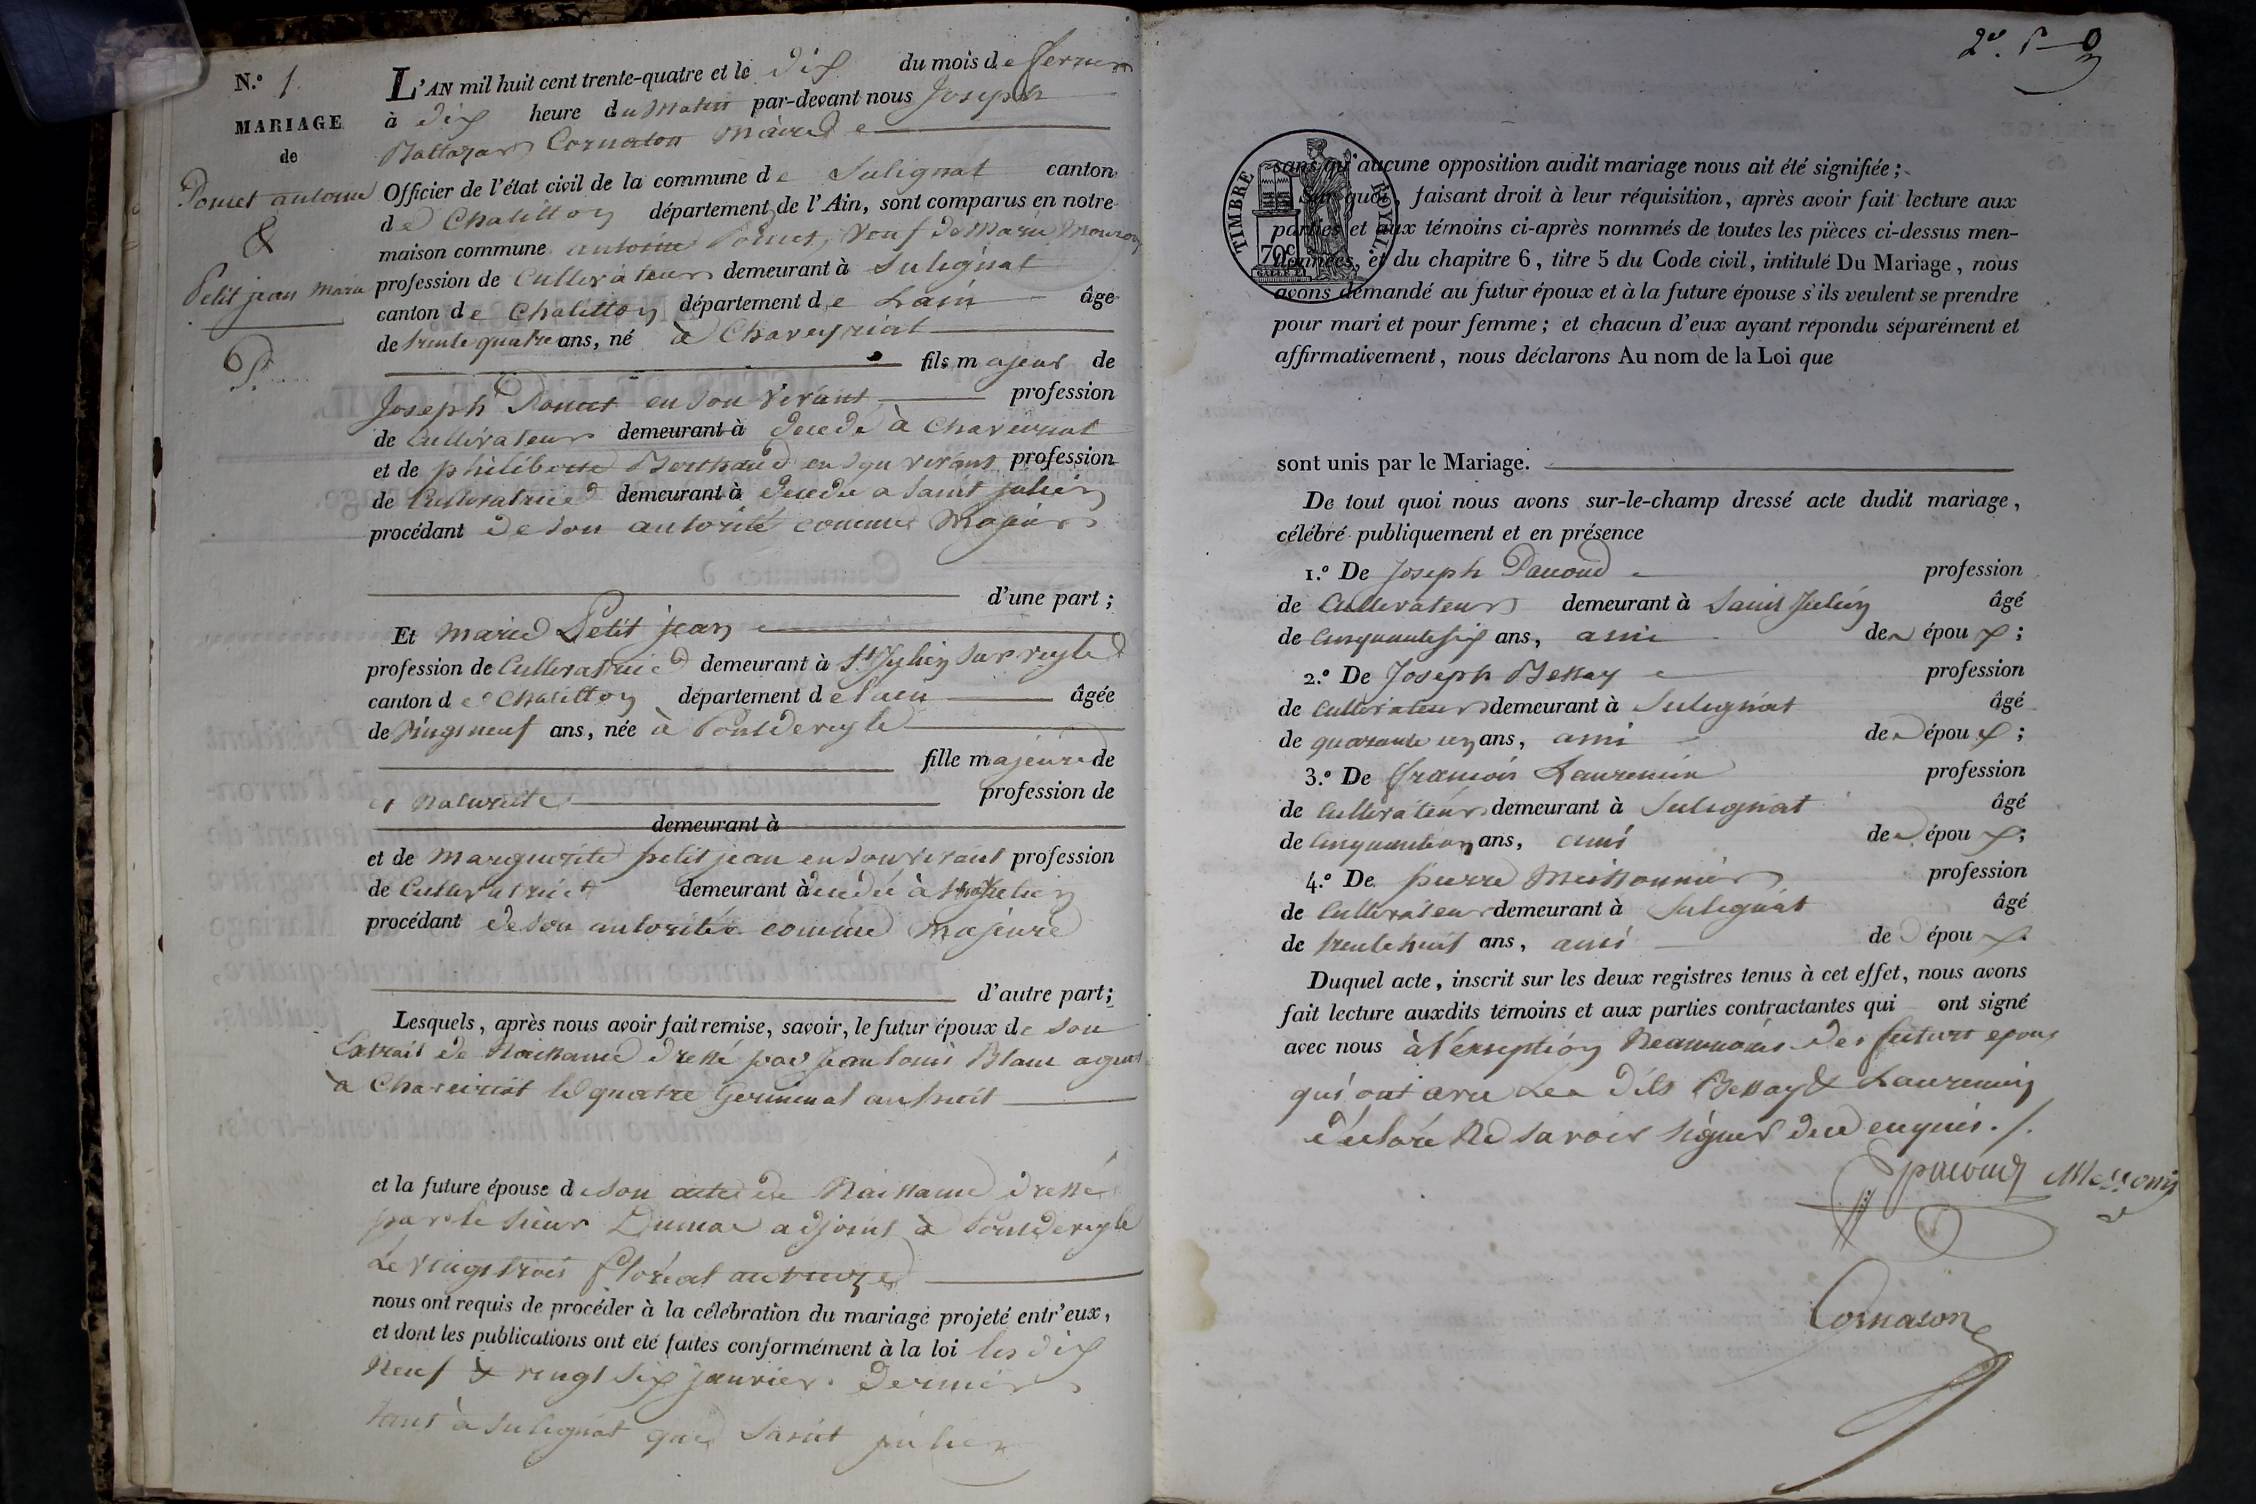 N.º 1.
MARIAGE
de
Poncet antoine
&
Petit jean marie
P.
L'AN mil huit cent trente-quatre et le dix du mois de fevrier
à dix heure du matin par-devant nous Joseph
Baltazard Cornaton maire
Officier de l'état civil de la commune de Sulignat canton
de Chatillon département de l'Ain, sont comparus en notre
maison commune antoine Poncet, veuf de Marie
profession de Cultivateur demeurant à Sulignat
canton de Chatillon département de Lain âgé
de trente quatre ans, né à Chaveyriat
fils majeur de
Joseph Poncet en son vivant profession
de Cultivateur demeurant à decedé à Chaveiriat
et de philiberte Berthaud en son vivant profession
de Cultivatrice demeurant à decedée a Saint julien
procédant de son autorité comme Majeur
d'une part ;
Et marie Petit jean
profession de Cultivatrice demeurant à St Julien sur veyle
canton de Chatillon département de l'ain âgée
de vingt neuf ans, née à Pontdeveyle
fille majeure de
et naturelle profession de
demeurant à
et de Marguerite petit jean en son vivant profession
de Cultivatrice demeurant à decedée à St Julien
procédant de son autorité comme majeure
d'autre part ;
Lesquels, après nous avoir fait remise, savoir, le futur époux de son
Extrait de Naissance dressé par Jean louis Blanc agent
à Chaveiriat le quatre Germinal an huit
et la future épouse de son acte de Naissance dressé
par le sieur Dumas adjoint à Pontdeveyle
Le vingt trois floréal an
nous ont requis de procéder à la célébration du mariage projeté entr'eux,
et dont les publications ont été faites conformément à la loi les dix
neuf & vingt six janvier dernier
tant à Sulignat que Saint julien
2e.
TIMBRE ROYAL
70c
sans qu'aucune opposition audit mariage nous ait été signifiée ;
Sur quoi, faisant droit à leur réquisition, après avoir fait lecture aux
parties et aux témoins ci-après nommés de toutes les pièces ci-dessus men-
tionnées, et du chapitre 6, titre 5 du Code civil, intitulé Du Mariage, nous
avons demandé au futur époux et à la future épouse s'ils veulent se prendre
pour mari et pour femme ; et chacun d'eux ayant répondu séparément et
affirmativement, nous déclarons Au nom de la Loi que
sont unis par le Mariage.
De tout quoi nous avons sur-le-champ dressé acte dudit mariage,
célébré publiquement et en présence
1.º De Joseph Pacoud profession
de Cultivateur demeurant à Saint Julien âgé
de cinquante six ans, ami de époux ;
2.º De Joseph Bessay profession
de Cultivateur demeurant à Sulignat âgé
de quarante un ans, ami de époux ;
3.º De francois Laurencin profession
de Cultivateur demeurant à Sulignat âgé
de ans, ami de époux ;
4.º De pierre Meissonnier profession
de Cultivateur demeurant à Sulignat âgé
de trente huit ans, ami de époux
Duquel acte, inscrit sur les deux registres tenus à cet effet, nous avons
fait lecture auxdits témoins et aux parties contractantes qui ont signé
avec nous à l'exseption Neanmoins des futurs epoux
qui ont avec Les dits Bessay & Laurencin
déclaré Ne savoir signer de ce enquis ./.
pacoud
Cornaton